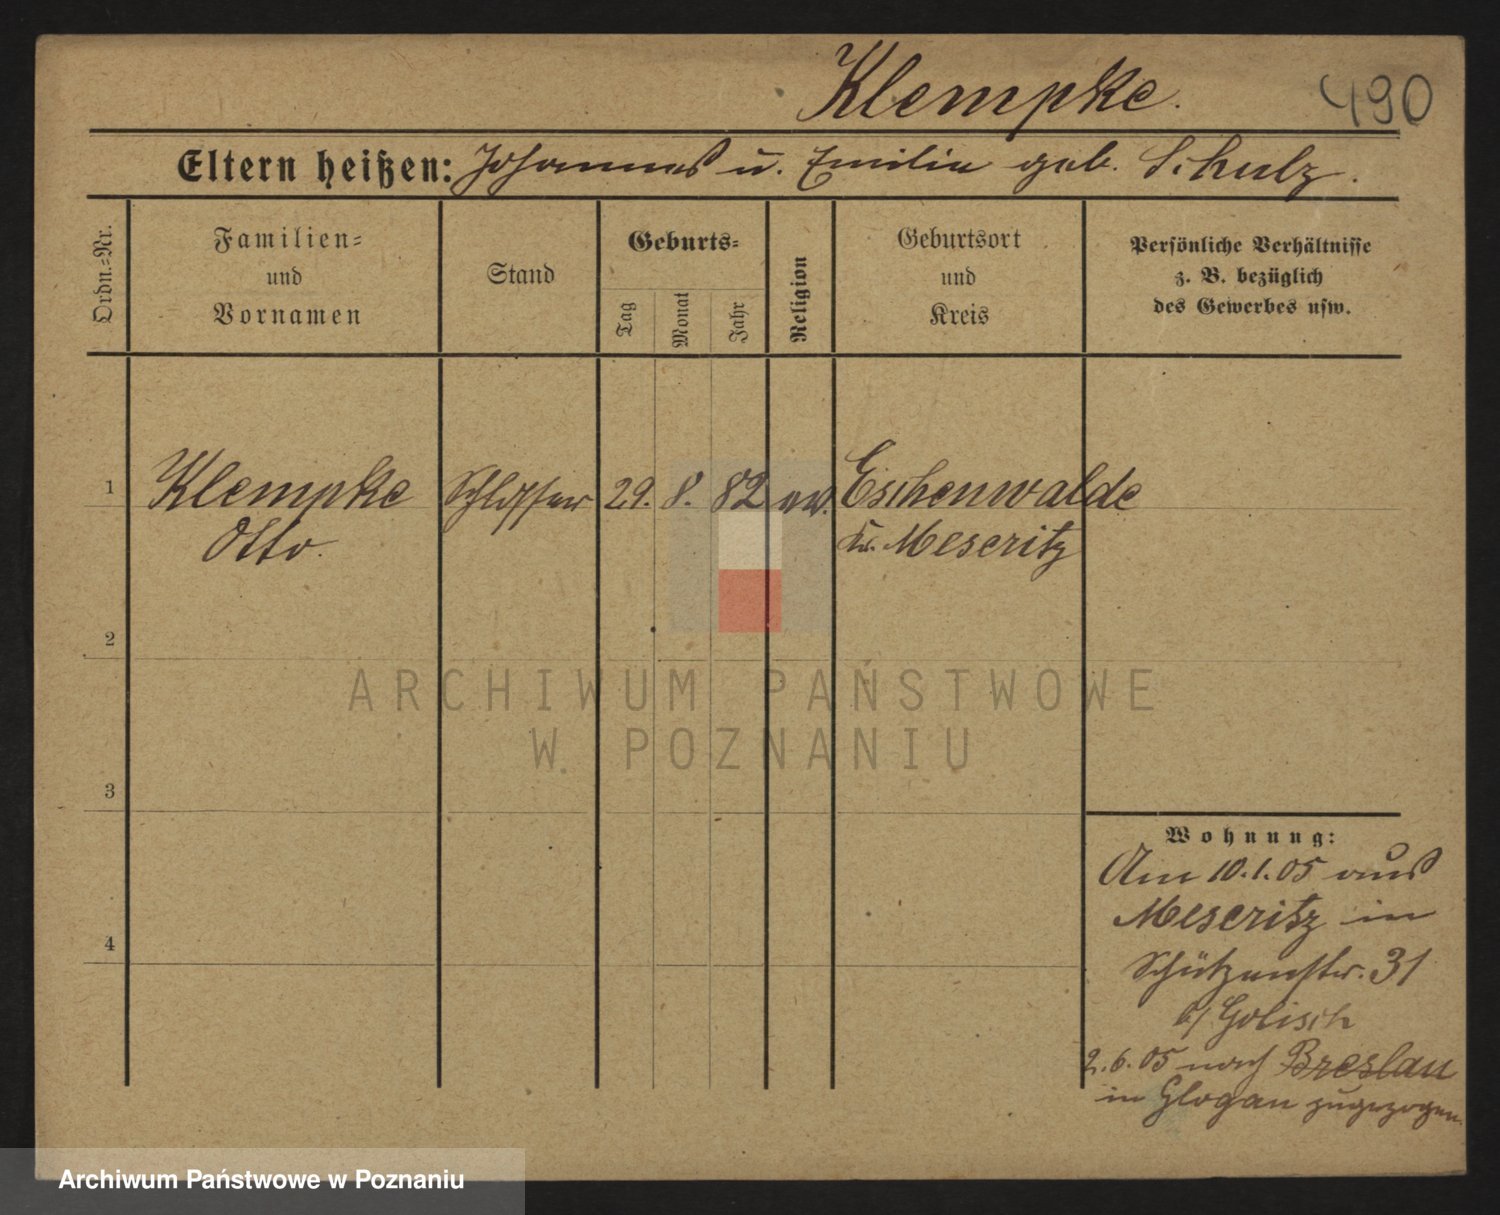 Klempke.
490
Eltern heißen: Johannes u. Emilie geb. Schulz.
Ordn.-Nr.
Familien-
und
Vornamen
Stand
Geburts-
Tag
Monat
Jahr
Religion
Geburtsort
und
Kreis
Persönliche Verhältnisse
z. B. bezüglich
des Gewerbes usw.
1 Klempke Schlosser 29. 8. 82 ev. Eschenwalde
Otto. Kr. Meseritz
2
3
4
Wohnung:
Am 10.1.05 aus
Meseritz in
Schützenstr. 31
b/ Golisch
2.6.05 nach Breslau
in Glogau zugezogen.
ARCHIWUM PAŃSTWOWE
W POZNANIU
Archiwum Państwowe w Poznaniu